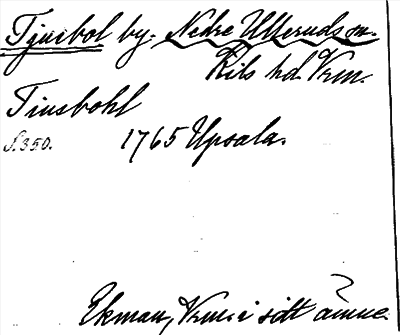 Tjusbol by. Nedre Ulleruds sn.
Kils hd. Vrm.
Tiusbohl
S. 350. 1765 Upsala.
Ekman, Verml. i sitt ämne.